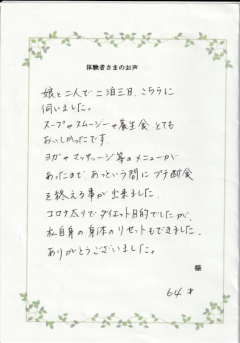 体験者さまのお声
娘と二人で二泊三日、こちらに
伺いました。
スープやスムージーや養生食とても
おいしかったです。
ヨガやマッサージ等のメニューが
あったので、あっという間にプチ断食
を終える事が出来ました。
コロナ太りでダイエット目的でしたが、
私自身の身体のリセットもできました。
ありがとうございました。
様
64才